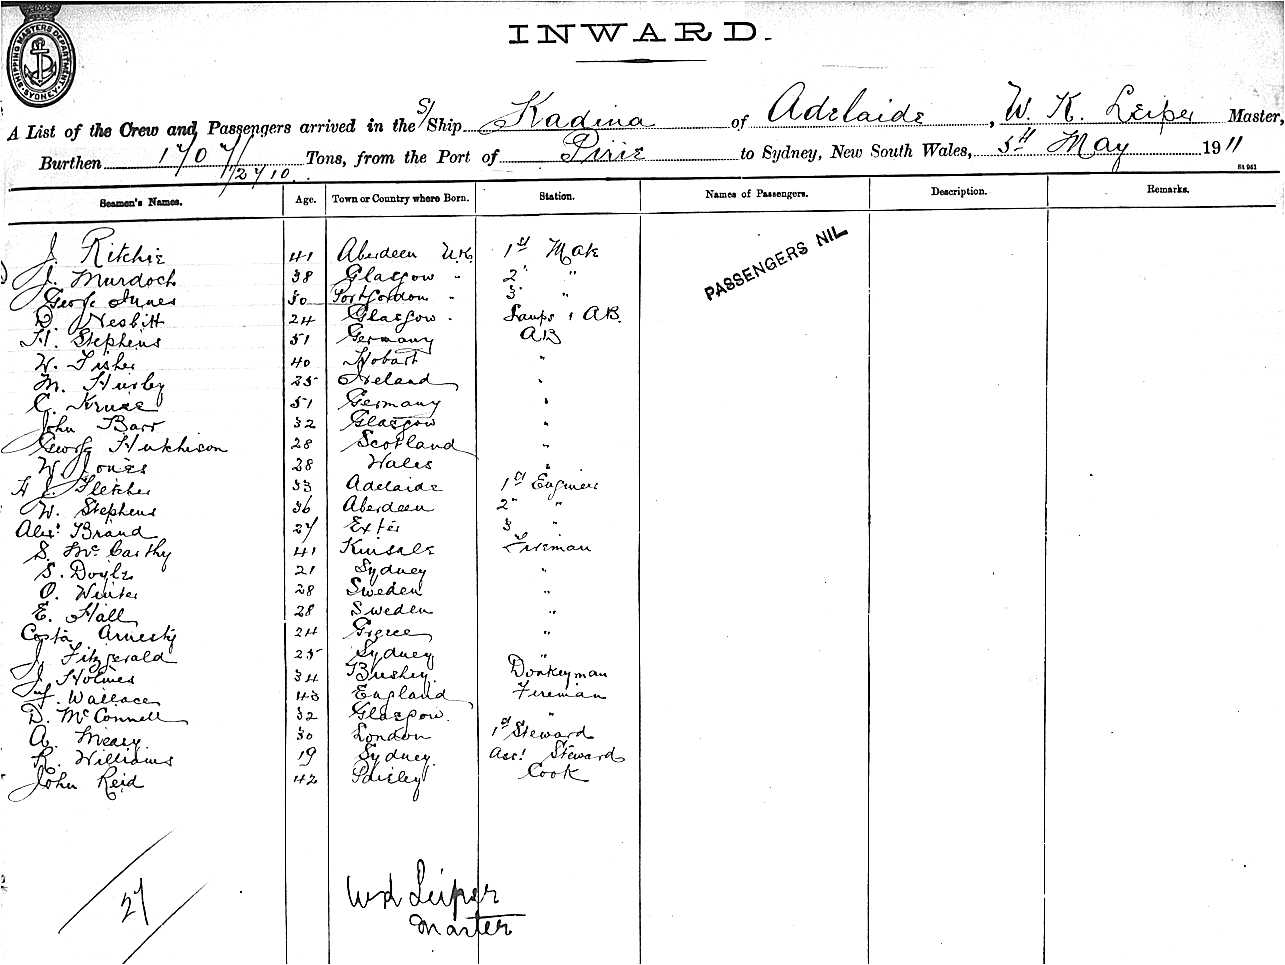 SHIPPING MASTERS DEPARTMENT SYDNEY
INWARD.
A List of the Crew and Passengers arrived in the S/Ship Kadina of Adelaide, W. K. Leiper Master,
Burthen 1707/2710 Tons, from the Port of Pirie to Sydney, New South Wales, 5th May 1911
Seamen's Names. Age. Town or Country where Born. Station. Names of Passengers. Description. Remarks.
PASSENGERS NIL
J. Ritchie 41 Aberdeen UK. 1st Mate
J. Murdoch 38 Glasgow " 2 "
George Innes 30 Portgordon " 3 "
D. Nesbitt 24 Glasgow " Lamps & AB.
H. Stephens 51 Germany AB
W. Fisher 40 Hobart "
M. Hurley 25 Ireland "
C. Kruse 51 Germany "
John Barr 32 Glasgow "
George Hutchison 28 Scotland "
W. Jones 28 Wales "
H L Fletcher 33 Adelaide 1st Engineer
W. Stephens 36 Aberdeen 2 "
Alexr Brand 27 Exter 3 "
S. McCarthy 41 Kinsale Fireman
S. Doyle 21 Sydney "
O. Winter 28 Sweden "
E. Hall 28 Sweden "
Costa Arnesty 24 Greece "
J. Fitzgerald 25 Sydney "
J. Holmes 34 Donkeyman
F. Wallace 43 England Fireman
D. McConnell 32 Glasgow. "
A. Meary. 30 London 1st Steward
R. Williams 19 Sydney. Asst Steward
John Reid 42 Paisley Cook
27
WK Leiper
Master